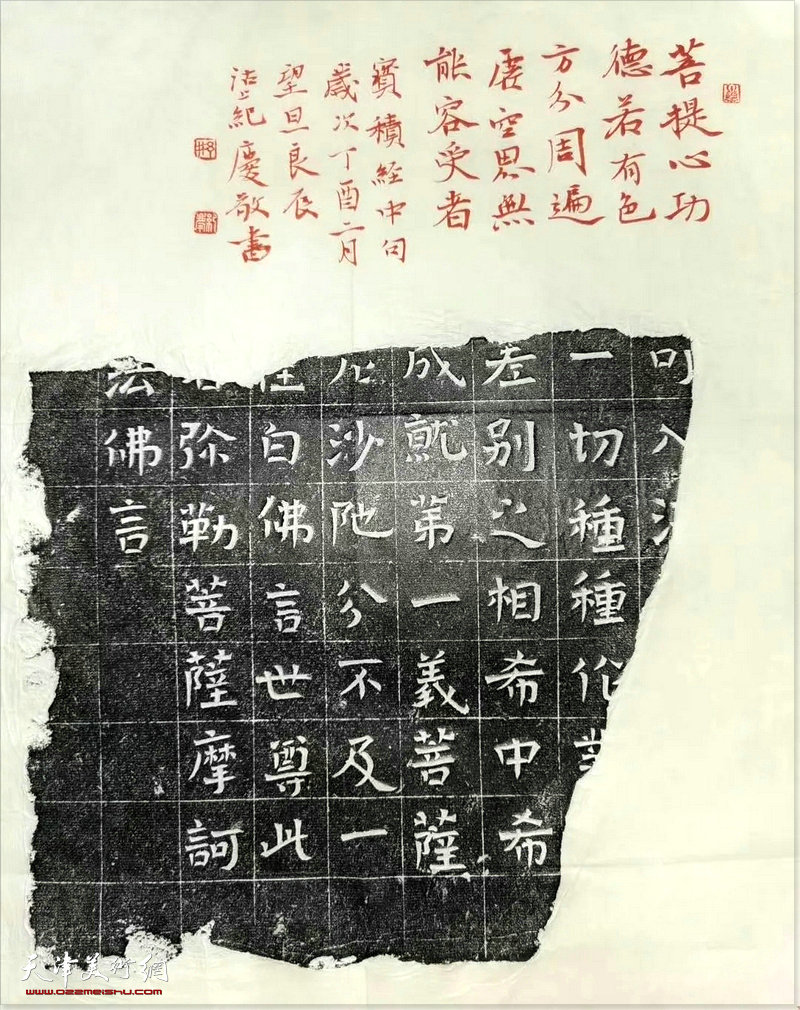 菩提心功
德若有色
方分周遍
虛空界無
能容受者
寶積經中句
歲次丁酉二月
望旦良辰
沽上紀慶敬書
可入
一切種種
差別之相希中希
成就第一義菩薩
沙陁分不及一
白佛言世尊此
弥勒菩薩摩訶
法佛言
天津美術網
www.022meishu.com